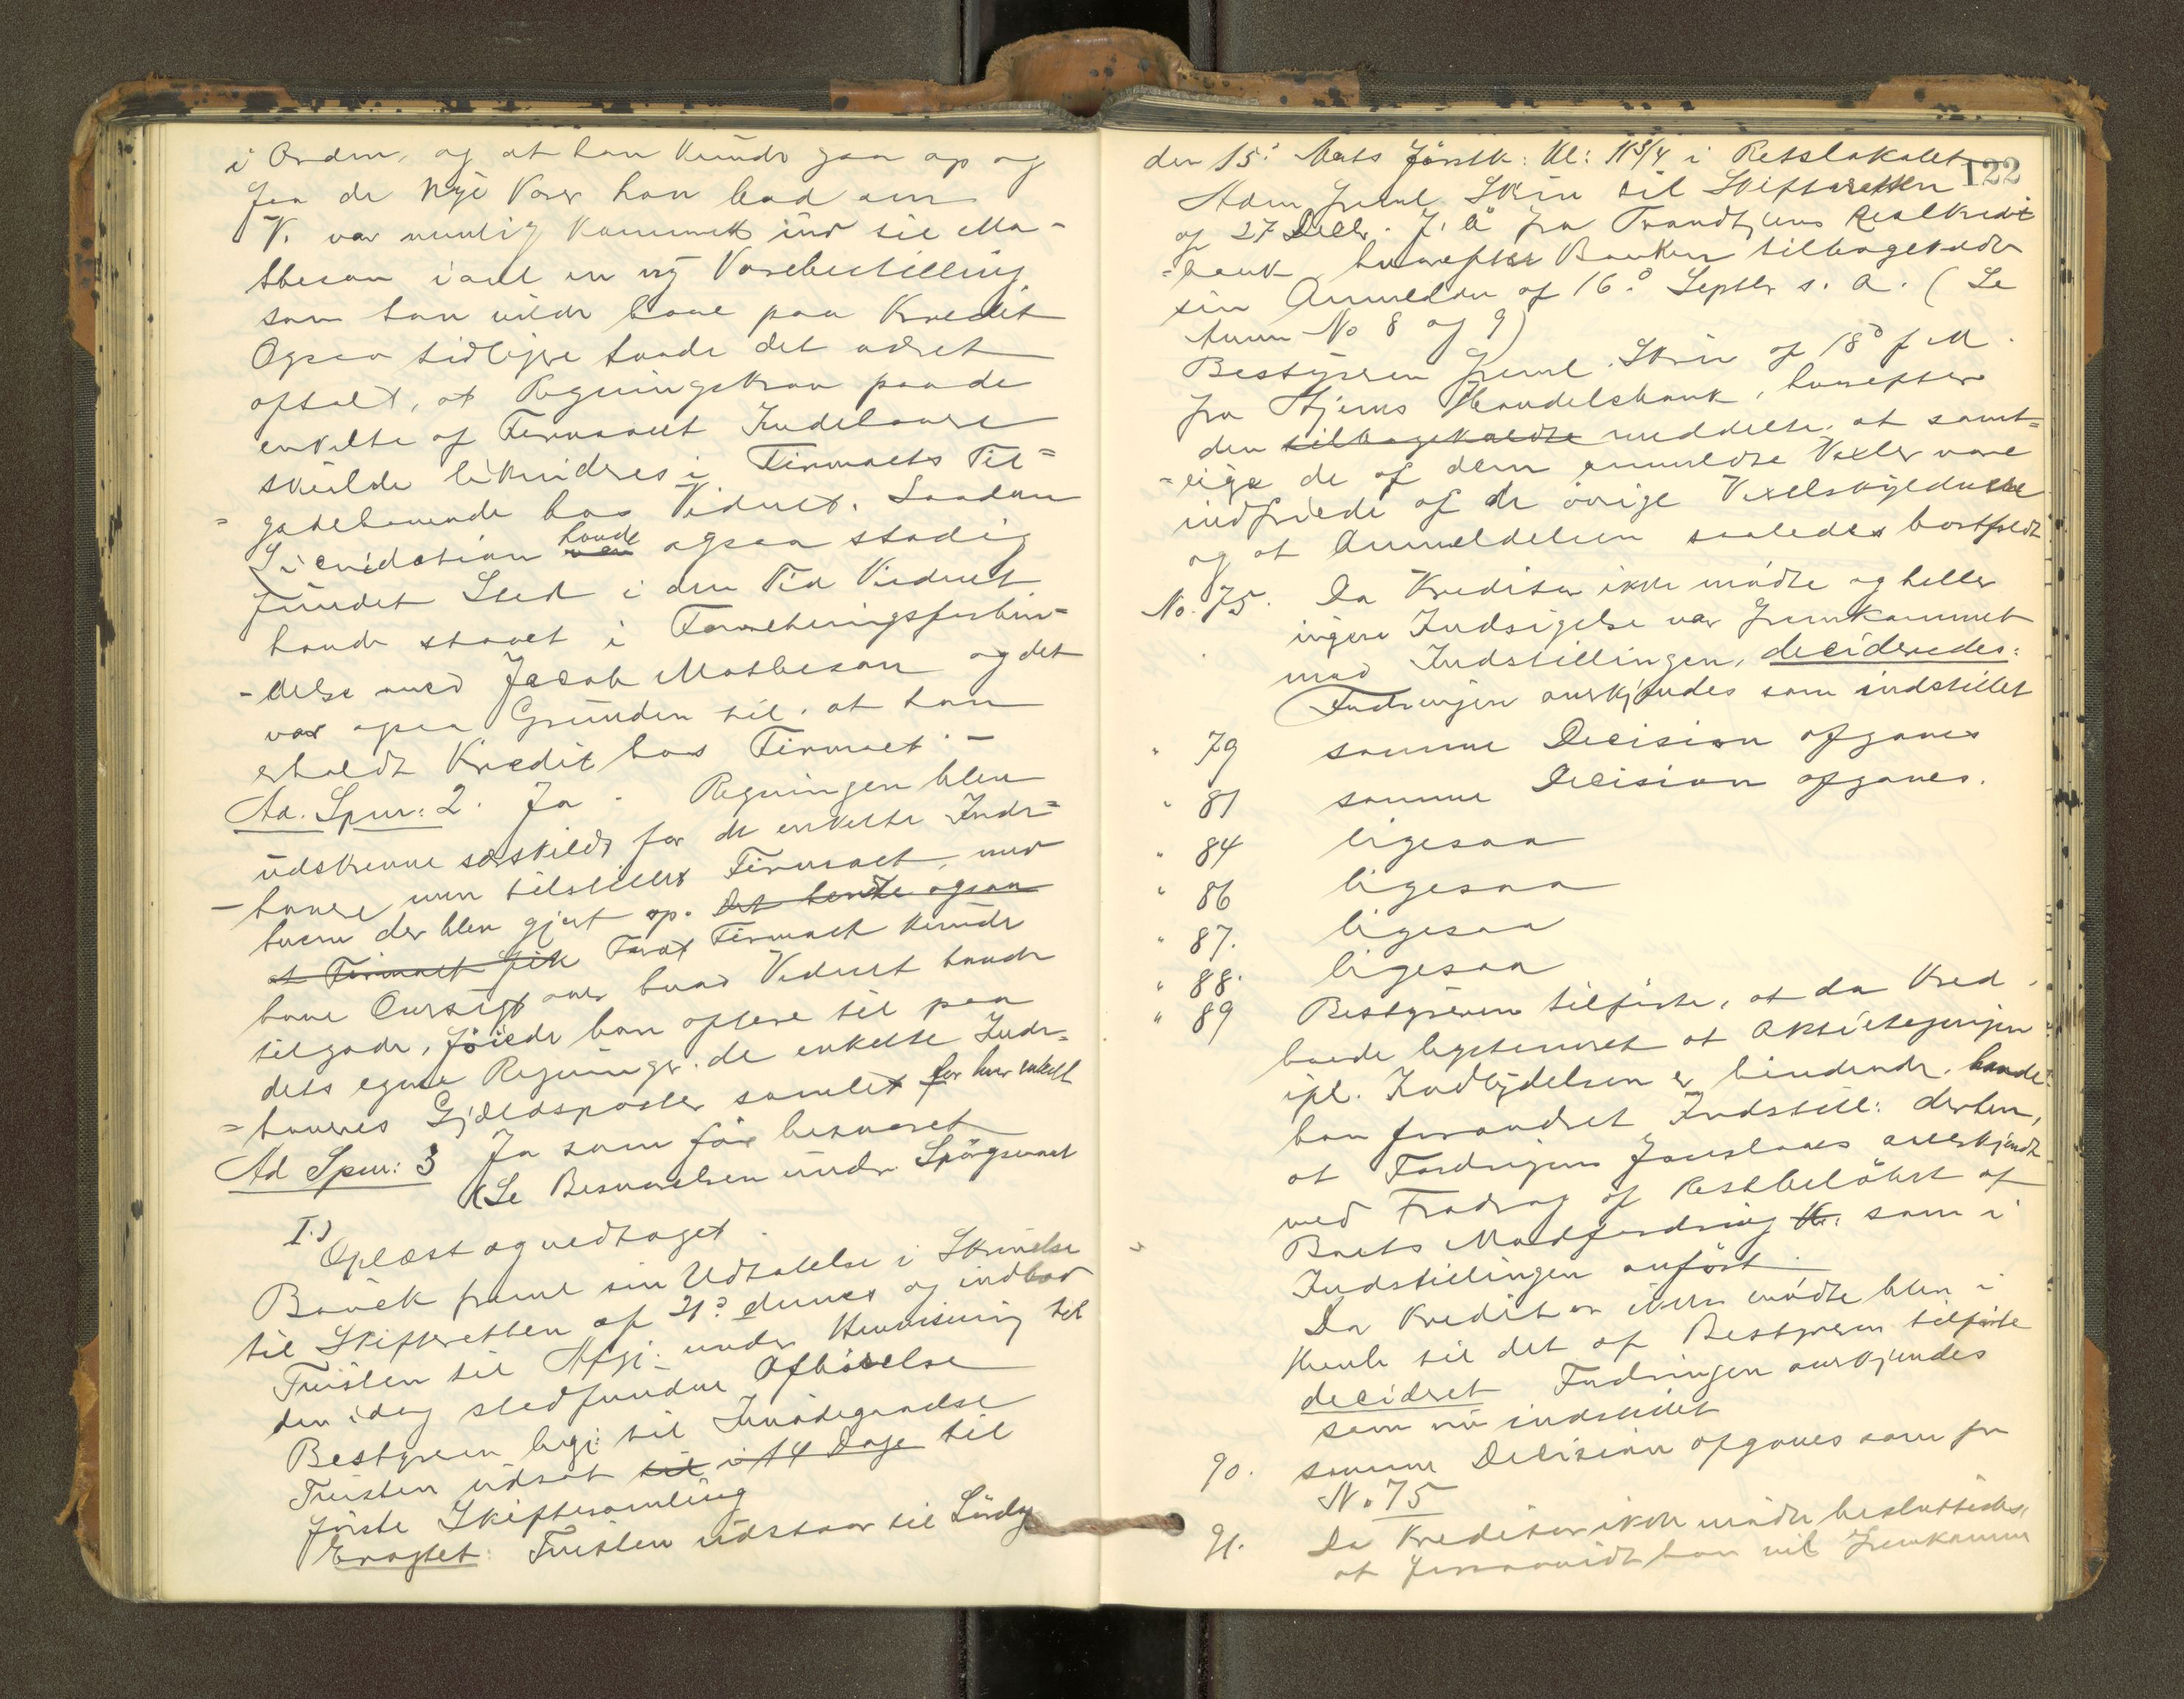 i Orden, og at han kunde gaa op og
faa de nye Varer han bad om
V. var nemlig kommet ind til Ma-
theson i anl en ny Varebestilling
som han vilde have paa Kredit
Ogsaa tidligere havde det været
aftalt, at Regningskrav paa de
enkelte af Firmaets Indehavere
skulde likvideres i Firmaets Til=
=godehavende hos Vidnet. Saadan
Licvidation havde ogsaa stadig
fundet Sted i den Tid Vidnet
havde staaet i Forretningsforbin-
-delse med Jacob Matheson og det
var ogsaa Grunden til, at han
erholdt Kredit hos Firmaet. -
Ad. Spm: 2. Ja. Regningen blev
udskrevne særskildt for de enkelte Inde=
-havere men tilstillet Firmaet, med
hvem der blev gjort op. Det hendte ogsaa
at Firmaet fik For at Firmaet kunde
have Oversigt over hvad Vidnet havde
tilgode, føiede han oftere til paa
dets egne Regninger de enkelte Inde-
=haveres Gjældsposter samlet for hver enkelt
Ad Spm: 3 Ja som før besvaret
(Se Besvarelsen under Spørgsmaal
I.)
Oplæst og vedtaget.
Bauck freml sin Udtalelse i Skrivelse
til Skifteretten af 21? dennes og indbad
Fristen til Afgj: under Henvisning til
den idag stedfundne Afhørelse
Bestyreren begj: til Imødegaaelse
Fristen udsat til i 14 Dage til
første Skiftesamling
Eragtet: Fristen udstaar til Lørdag
122
den 15? Marts førstk: Kl: 11 3/4 i Retslokalet
Adm freml. Skriv til Skifteretten
af 27 Decbr. f. A fra Trondhjems Realkredit
-bank hvorefter Banken tilbagekalder
sin Anmeldn af 16? Septbr s. A. (Se
Anm No 8 og 9)
Bestyreren freml. Skriv af 18? f. M.
fra Thjems Handelsbank, hvorefter
den tilbagekaldte meddelte, at samt=
=lige de af dem anmeldte Vexler vare
indfriede af de øvrige Vexelskyldnere
og at Anmeldelsen saaledes bortfaldt
No. 75. Da Kreditor ikke mødte og heller
ingen Indsigelse var fremkommet
mod Indstillingen, decideredes:
Fordringen anerkjendes som indstillet
" 79 samme Decision afgaves
" 81 samme Decision afgaves.
" 84 ligesaa
" 86 ligesaa
" 87. ligesaa
" 88. ligesaa
" 89 Bestyreren tilførte, at da Kred.
havde legitimeret at Aktietegningen
ifl. Indbydelsen er bindende, havde
han forandret Indstill: derhen,
at Fordringen anerkjendt
med Fradrag af Restbeløbet af
Boets Modfordring Kr. som i
Indstillingen anført.
Da Kreditor ikke mødte blev i
Henh til det af Bestyreren tilførte
decideret Fordringen anerkjendes
som nu indstillet
90. samme Decision afgaves som for
No 75
91. Da Kreditor ikke mødte besluttedes,
at forsaavidt han vil fremkomme